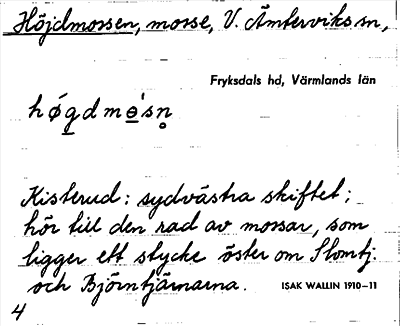 Höjdmossen, mosse, V. Ämterviks sn,
Fryksdals hd, Värmlands län
hǿg̲dmɵ̲'sn̥
Kisterud: sydvästra skiftet;
hör till den rad av mossar, som
ligger ett stycke öster om Slomtj.
och Björntjärnarna. ISAK WALLIN 1910–11
4